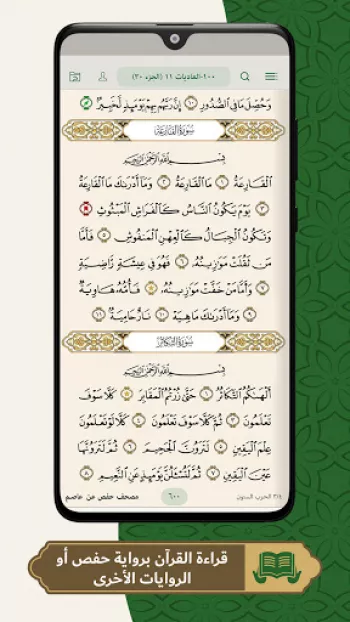 ١٠٠-العاديات ١١ (الجزء ٣٠)
وَحُصِّلَ مَا فِي الصُّدُورِ ١٠ إِنَّ رَبَّهُم بِهِمْ يَوْمَئِذٍ لَّخَبِيرٌ
سُورَةُ القَارِعَةِ
بِسْمِ اللَّهِ الرَّحْمَٰنِ الرَّحِيمِ
الْقَارِعَةُ ١ مَا الْقَارِعَةُ ٢ وَمَا أَدْرَاكَ مَا الْقَارِعَةُ
٣ يَوْمَ يَكُونُ النَّاسُ كَالْفَرَاشِ الْمَبْثُوثِ
وَتَكُونُ الْجِبَالُ كَالْعِهْنِ الْمَنفُوشِ ٥ فَأَمَّا
مَن ثَقُلَتْ مَوَازِينُهُ ٦ فَهُوَ فِي عِيشَةٍ رَّاضِيَةٍ
٧ وَأَمَّا مَنْ خَفَّتْ مَوَازِينُهُ ٨ فَأُمُّهُ هَاوِيَةٌ
٩ وَمَا أَدْرَاكَ مَا هِيَهْ ١٠ نَارٌ حَامِيَةٌ ١١
سُورَةُ التَّكَاثُرِ
بِسْمِ اللَّهِ الرَّحْمَٰنِ الرَّحِيمِ
أَلْهَاكُمُ التَّكَاثُرُ ١ حَتَّىٰ زُرْتُمُ الْمَقَابِرَ ٢ كَلَّا سَوْفَ
تَعْلَمُونَ ٣ ثُمَّ كَلَّا سَوْفَ تَعْلَمُونَ ٤ كَلَّا لَوْ تَعْلَمُونَ
عِلْمَ الْيَقِينِ ٥ لَتَرَوُنَّ الْجَحِيمَ ٦ ثُمَّ لَتَرَوُنَّهَا
عَيْنَ الْيَقِينِ ٧ ثُمَّ لَتُسْأَلُنَّ يَوْمَئِذٍ عَنِ النَّعِيمِ ٨
٣/٤ الحزب الستون
٦٠٠
مصحف حفص عن عاصم
قراءة القرآن برواية حفص أو
الروايات الأخرى